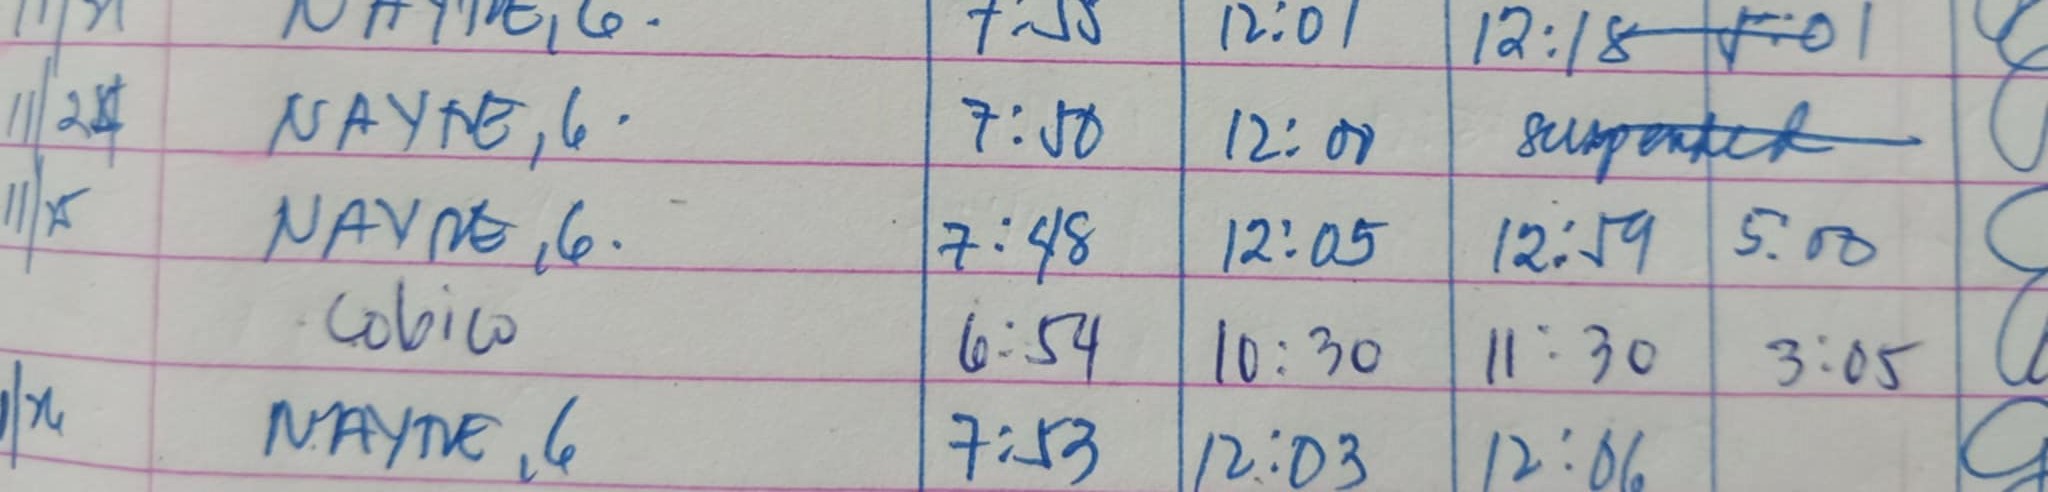 NAYRE, G. 7:55 12:01 12:18 5:01
11/24 NAYRE, G. 7:50 12:00 suspended
11/25 NAYRE, G. 7:48 12:05 12:59 5:00
Cobico 6:54 10:30 11:30 3:05
NAYRE, G 7:53 12:03 12:06